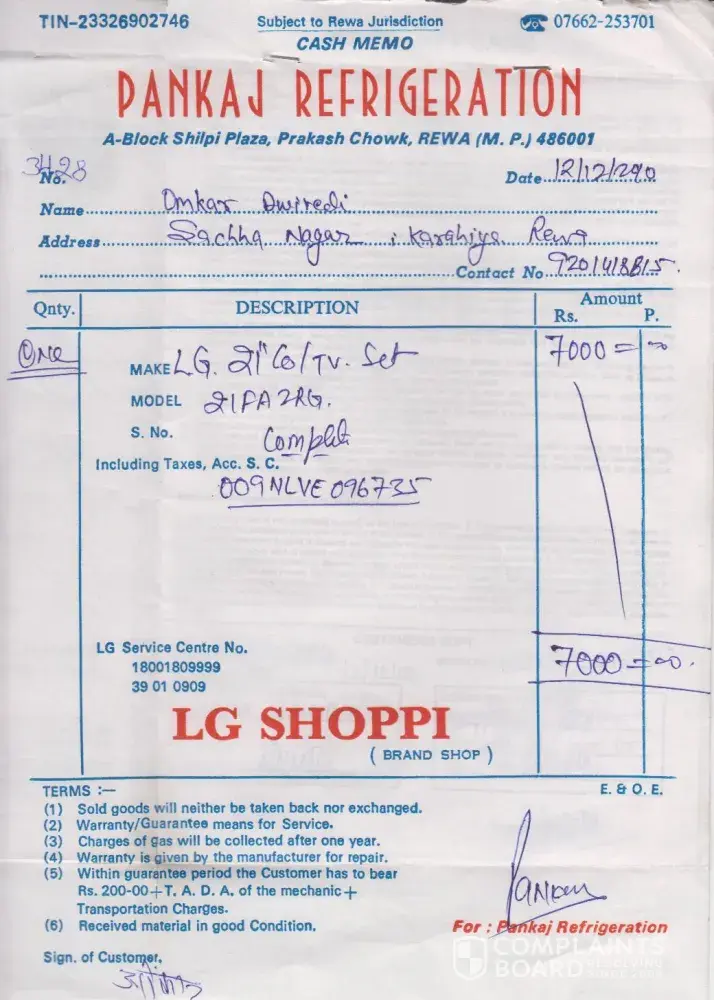 TIN-23326902746 Subject to Rewa Jurisdiction 07662-253701
CASH MEMO
PANKAJ REFRIGERATION
A-Block Shilpi Plaza, Prakash Chowk, REWA (M. P.) 486001
No. 3428 Date 12/12/2010
Name Omkar Dwivedi
Address Sachha Nagar, Karahiya Rewa
Contact No 9201418815.
Qnty. DESCRIPTION Amount
Rs. P.
One MAKE LG. 21" Col TV. Set 7000 = 00
MODEL 21FA2RG.
S. No. Complet
Including Taxes, Acc. S. C.
009NLVE096735
LG Service Centre No.
18001809999
39 01 0909
7000 = 00.
LG SHOPPI
( BRAND SHOP )
TERMS :— E. & O. E.
(1) Sold goods will neither be taken back nor exchanged.
(2) Warranty/Guarantee means for Service.
(3) Charges of gas will be collected after one year.
(4) Warranty is given by the manufacturer for repair.
(5) Within guarantee period the Customer has to bear
Rs. 200-00+T. A. D. A. of the mechanic+
Transportation Charges.
(6) Received material in good Condition.
Pankaj
For : Pankaj Refrigeration
Sign. of Customer,
COMPLAINTS
BOARD